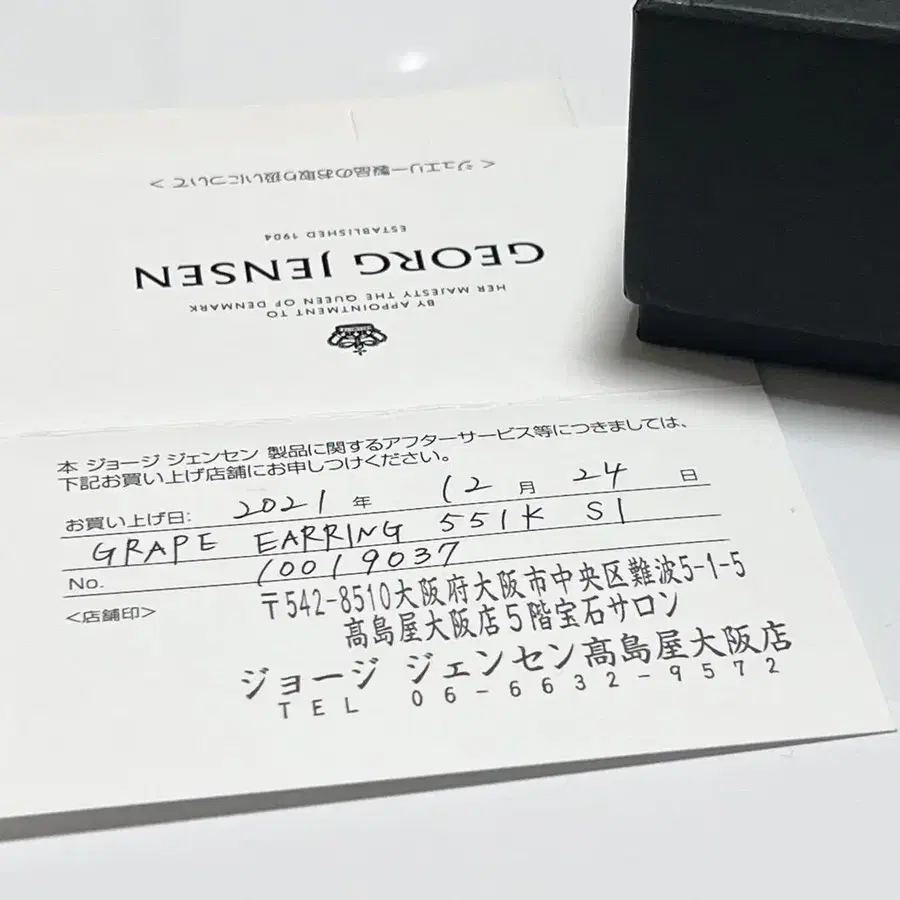 <ジュエリー製品のお取り扱いについて>
ESTABLISHED 1904
GEORG JENSEN
BY APPOINTMENT TO
HER MAJESTY THE QUEEN OF DENMARK
本 ジョージ ジェンセン 製品に関するアフターサービス等につきましては、
下記お買い上げ店舗にお申しつけください。
お買い上げ日: 2021 年 12 月 24 日
GRAPE EARRING 551K SI
No. 10019037
<店舗印> 〒542-8510大阪府大阪市中央区難波5-1-5
髙島屋大阪店5階宝石サロン
ジョージ ジェンセン髙島屋大阪店
TEL 06-6632-9572